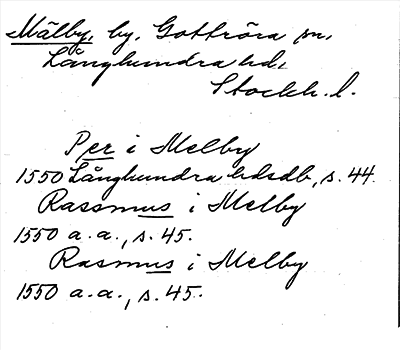 Mälby, by, Gottröra sn,
Långhundra hd,
Stockh. l.
Per i Melby
1550 Långhundra hdsdb, s. 44.
Rassmus i Melby
1550 a. a., s. 45.
Rasmus i Melby
1550 a. a., s. 45.